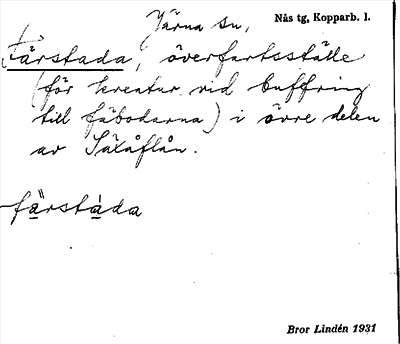 Järna sn, Nås tg, Kopparb. l.
Färstada, överfartsställe
(för kreatur vid buffring
till fäbodarna) i övre delen
av Säxåflån.
färstáda
Bror Lindén 1931